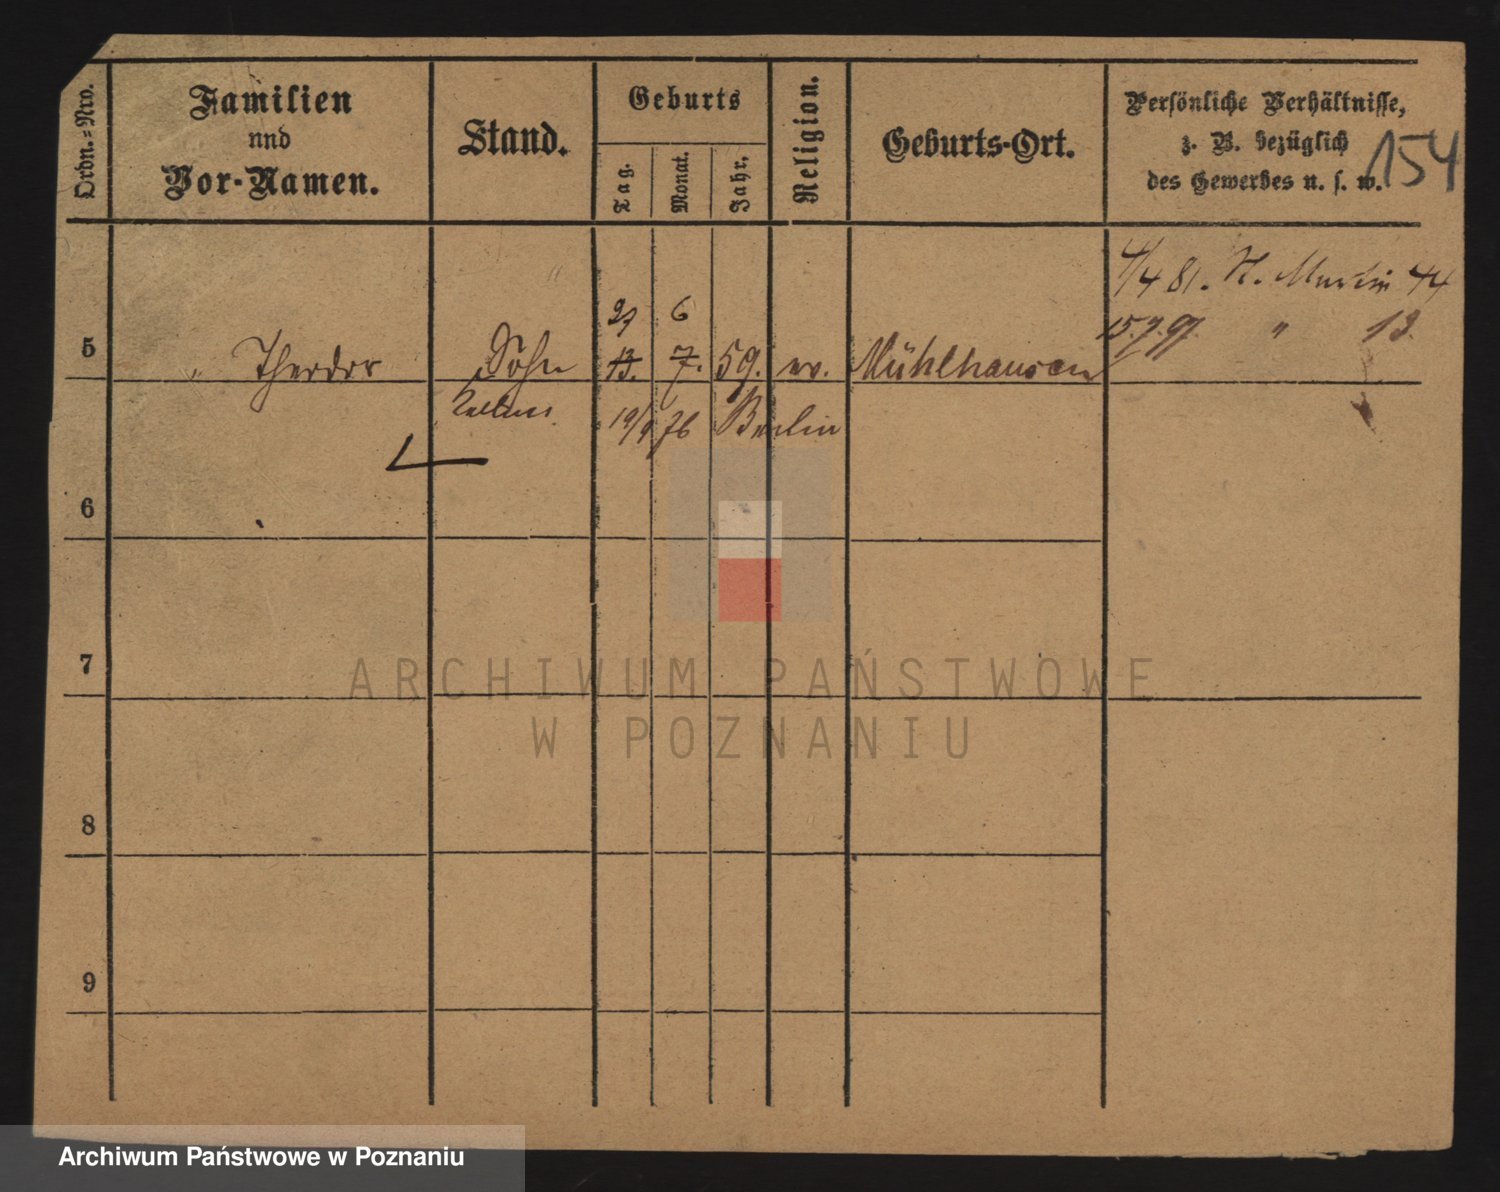 Ordn.=Nro.
Familien
und
Vor-Namen.
Stand.
Geburts
Tag.
Monat.
Jahr.
Religion.
Geburts-Ort.
Persönliche Verhältnisse,
z. B. bezüglich
des Gewerbes u. s. w.
154
4/4 81. St. Martin 44
15.7.97. " 13.
27 6
5 " Theodor Sohn 13. 7. 59. ev. Mühlhausen
19/9 76 Berlin
6
7
8
9
ARCHIWUM PAŃSTWOWE
W POZNANIU
Archiwum Państwowe w Poznaniu